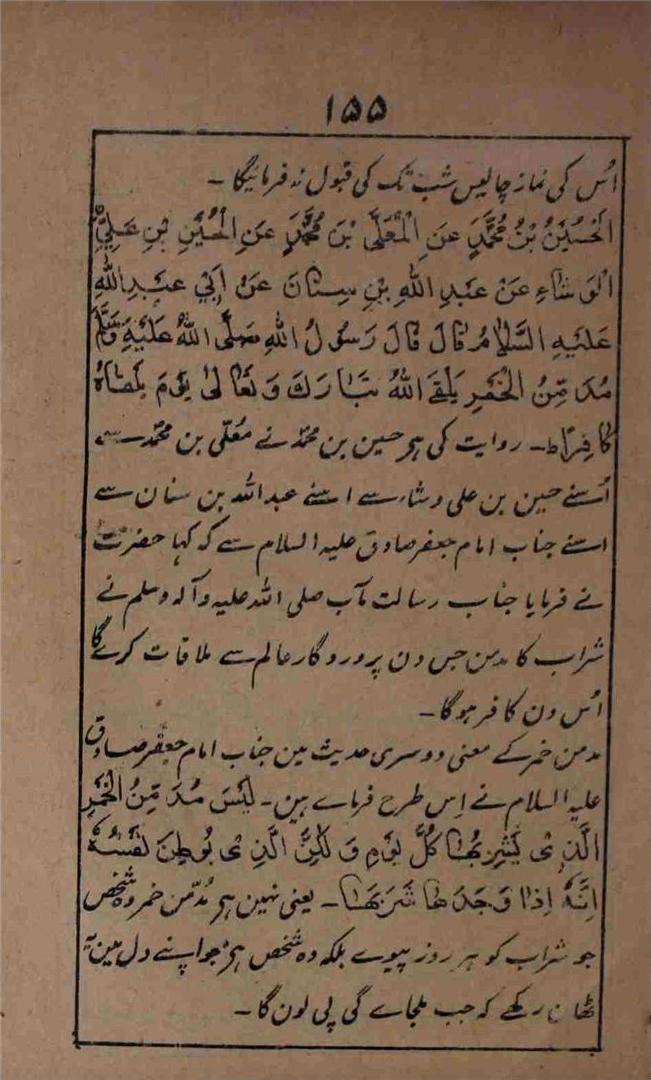 ۱۵۵
اُس کی نماز چالیس شب تک کی قبول نہ فرمائیگا ۔
اَلْحُسَیْنُ بْنُ مُحَمَّدٍ عَنِ الْمُعَلّٰی بْنِ مُحَمَّدٍ عَنِ الْحُسَیْنِ بْنِ عَلِیِّ
الْوَشَّاءِ عَنْ عَبْدِ اللّٰهِ بْنِ سِنَانَ عَنْ اَبِیْ عَبْدِ اللّٰهِ
عَلَیْهِ السَّلَامُ قَالَ قَالَ رَسُوْلُ اللّٰهِ صَلَّی اللّٰهُ عَلَیْهِ وَسَلَّمَ
مُدْمِنُ الْخَمْرِ یَلْقَی اللّٰهَ تَبَارَكَ وَتَعَالٰی یَوْمَ یَلْقَاهُ
کَافِرًا ط ۔ روایت کی ہر حسین بن محمدؐ نے معلّٰی بن محمدؐ سے
اُسنے حسین بن علی وشاء سے اسنے عبداللہ بن سنان سے
اسنے جناب امام جعفر صادق علیہ السلام سے کہ کہا حضرت
نے فرمایا جناب رسالت مآب صلی اللہ علیہ وآلہ وسلم نے
شراب کا مدمن جس دن پروردگار عالم سے ملاقات کرے گا
اُس دن کافر ہوگا ۔
مدمن خمر کے معنی دوسری حدیث مین جناب امام جعفر صادق
علیہ السلام نے اِس طرح فرماے ہین ۔ لَیْسَ مُدْمِنُ الْخَمْرِ
الَّذِیْ یَشْرِبُهَا کُلَّ یَوْمٍ وَ لٰکِنَّ الَّذِیْ یُوْطِنُ نَفْسَهٗ
اِنَّهٗ اِذَا وَجَدَهَا شَرِبَهَا ۔ یعنی نہین ہر مُدّمن خمر وہ شخص
جو شراب کو ہر روز پیوے بلکہ وہ شخص ہر جو اپنے دل مین یہ
ٹھان رکھے کہ جب ملجاے گی پی لون گا ۔